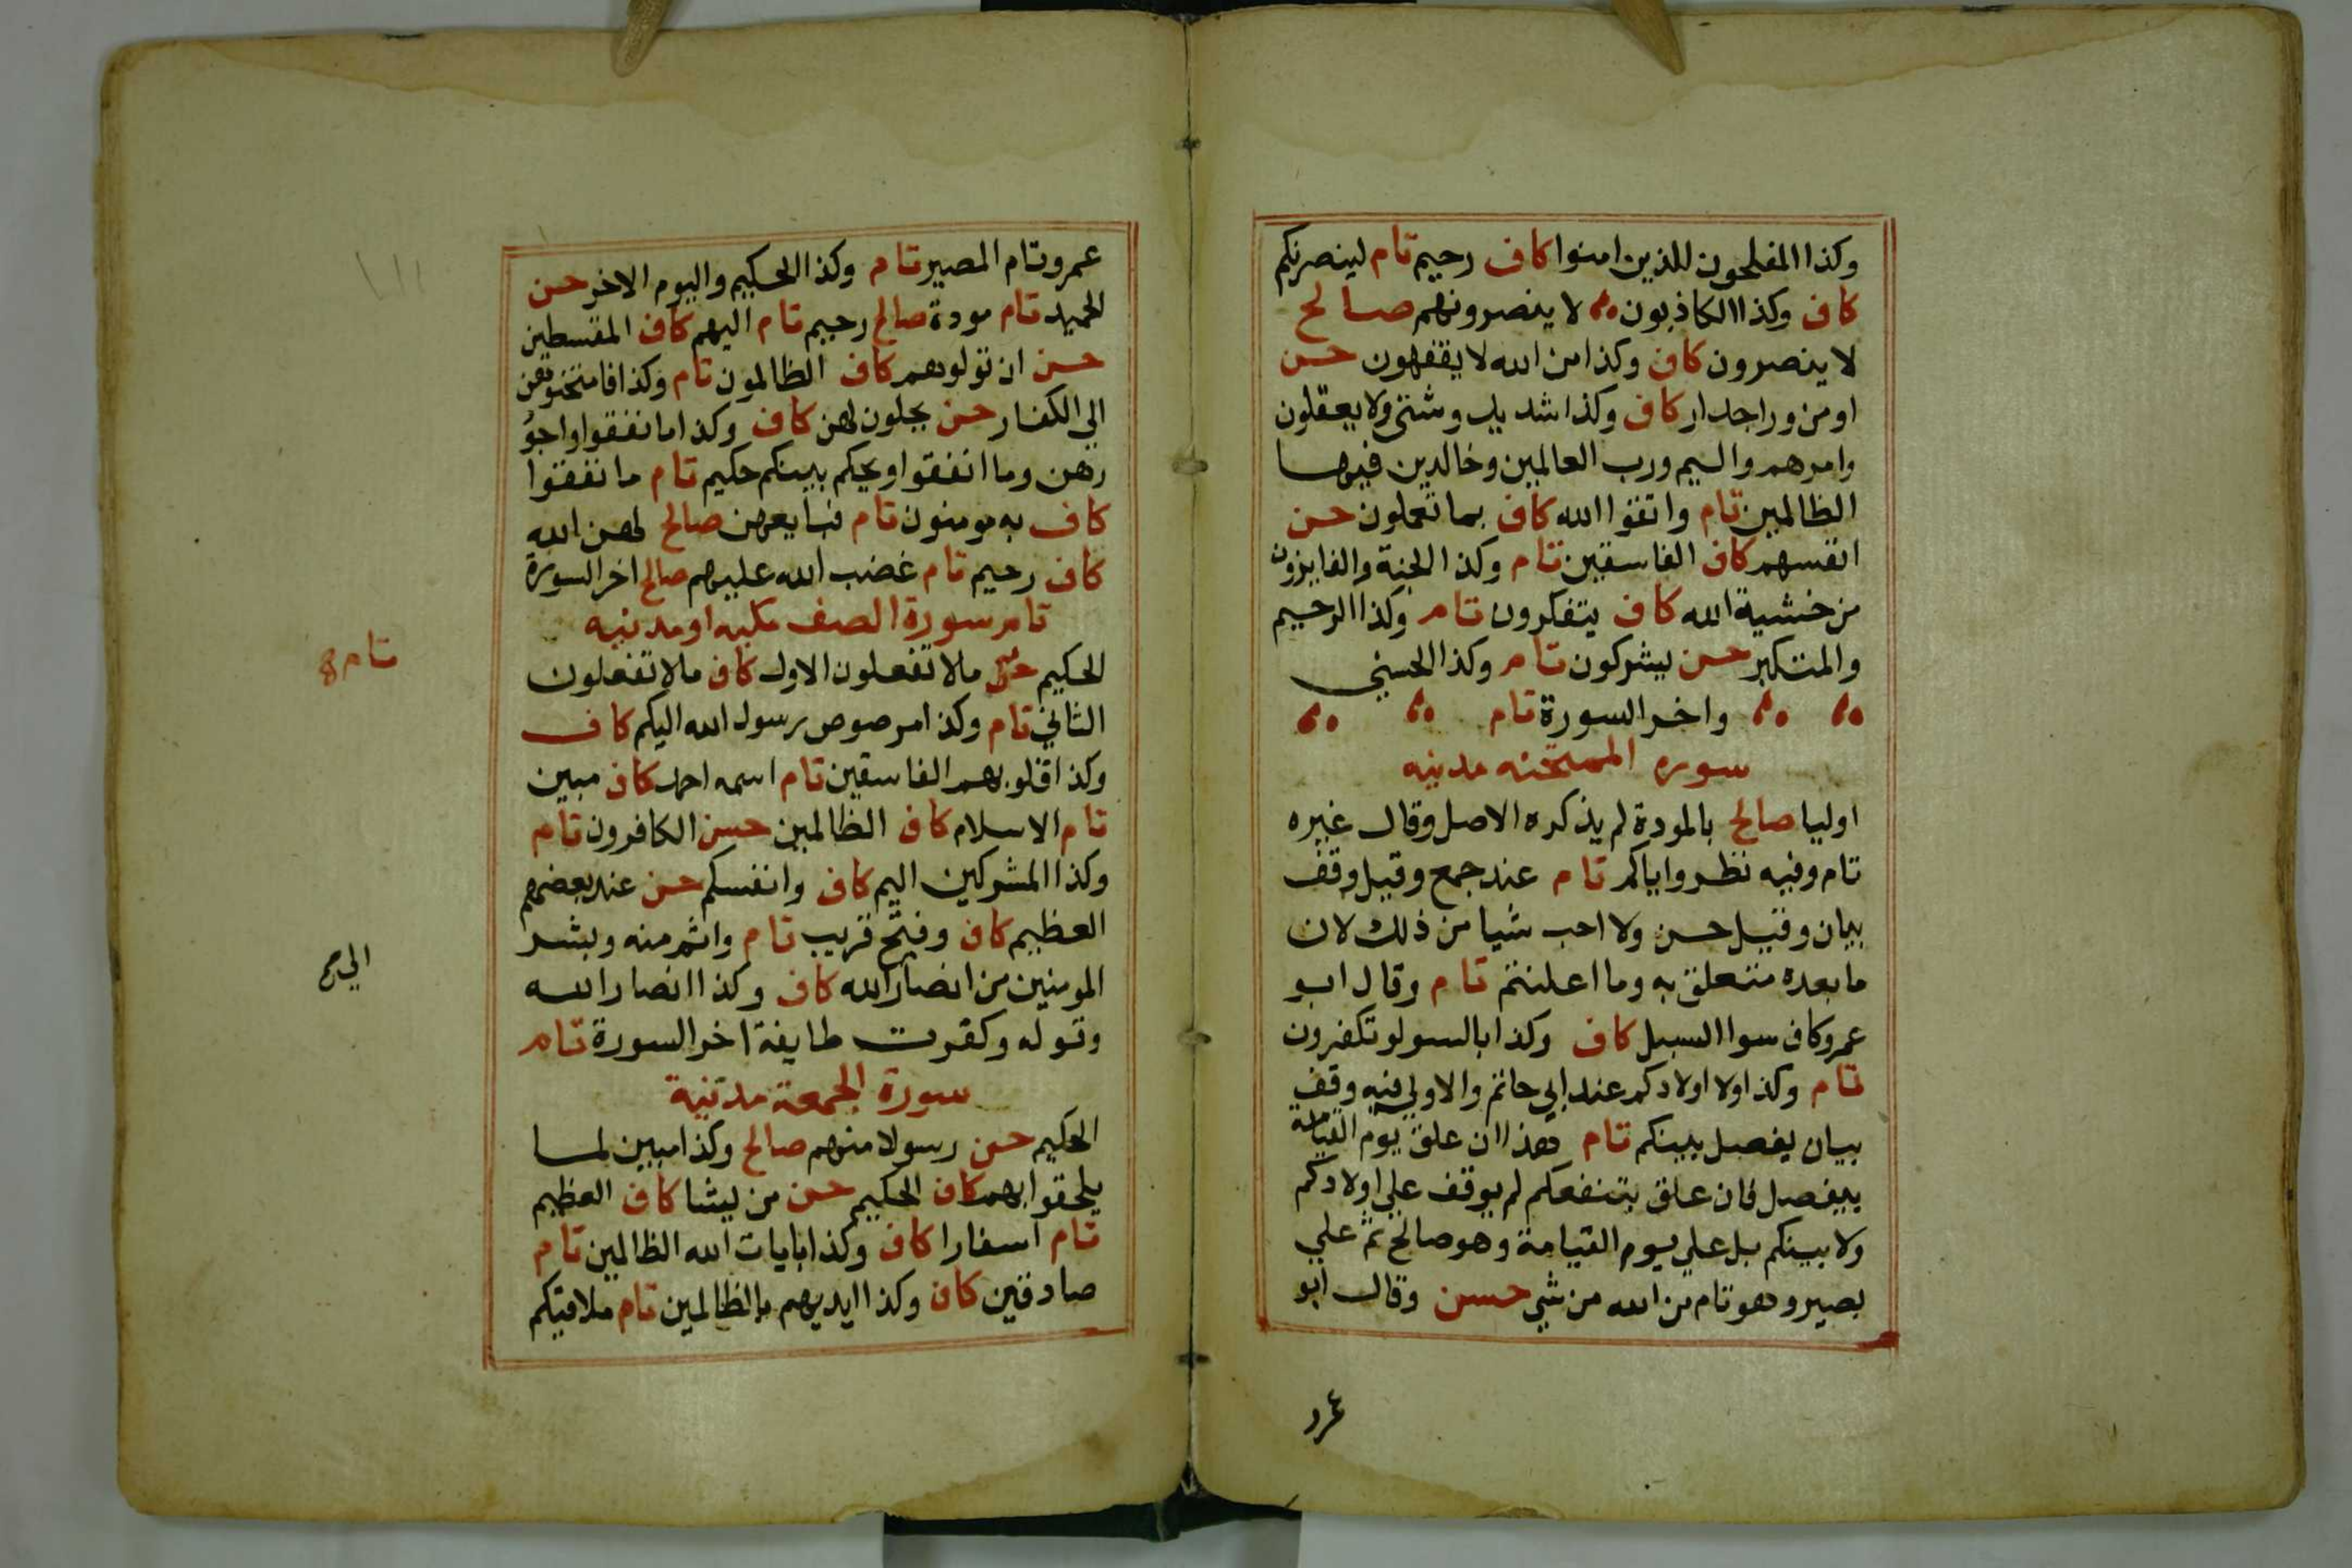 وكذا المفلحون للذين امنوا كاف رحيم تام لينصرنكم
كاف وكذا الكاذبون لا ينصرونهم صالح
لا ينصرون كاف وكذا من الله لا يفقهون حسن
او من ورا جدار كاف وكذا شديد وشتي ولا يعقلون
وامرهم واليم ورب العالمين وخالدين فيها
الظالمين تام واتقوا الله كاف بما تعملون حسن
انفسهم كاف الفاسقين تام وكذا الجنة والفايزون
من خشية الله كاف يتفكرون تام وكذا الرحيم
والمتكبر حسن يشركون تام وكذا الحسني
واخر السورة تام
سورة الممتحنه مدنيه
اوليا صالح بالمودة لم يذكره الاصل وقال غيره
تام وفيه نظر واياكم تام عند جمع وقيل وقف
بيان وقيل حسن ولا احب شيا من ذلك لان
ما بعده متعلق به وما اعلنتم تام وقال ابو
عمرو كاف سوا السبيل كاف وكذا بالسو لو تكفرون
تام وكذا ولا اولادكم عند ابي حاتم والاولي فيه وقف
بيان يفصل بينكم تام هذا ان علق يوم القيامة
بيفصل فان علق بتنفعكم لم يوقف علي اولادكم
ولا بينكم بل علي يوم القيامة وهو صالح ثم علي
بصير وهو تام من الله من شي حسن وقال ابو
عمرو
عمرو تام المصير تام وكذا الحكيم واليوم الاخر حسن
الحميد تام مودة صالح رحيم تام اليهم كاف المقسطين
حسن ان تولوهم كاف الظالمون تام وكذا فامتحنوهن
الي الكفار حسن يحلون لهن كاف وكذا ما انفقوا واجو
رهن وما انفقوا ويحكم بينكم حكيم تام ما نفقوا
كاف به مومنون تام فبايعهن صالح لهن الله
كاف رحيم تام غضب الله عليهم صالح اخر السورة
تام سورة الصف مكيه او مدنيه
الحكيم حسن مالا تفعلون الاول كاف مالا تفعلون
تام
الثاني تام وكذا مرصوص رسول الله اليكم كاف
وكذا قلوبهم الفاسقين تام اسمه احمد كاف مبين
تام الاسلام كاف الظالمين حسن الكافرون تام
وكذا المشركين اليم كاف وانفسكم حسن عند بعضهم
العظيم كاف وفتح قريب تام واتم منه وبشر
المومنين من انصار الله كاف وكذا انصار الله
وقوله وكفرت طايفة اخر السورة تام
سورة الجمعة مدنية
الحكيم حسن رسولا منهم صالح وكذا مبين لما
يلحقوا بهم كاف الحكيم حسن من يشا كاف العظيم
تام اسفارا كاف وكذا بايات الله الظالمين تام
صادقين كاف وكذا ايديهم بالظالمين تام ملاقيكم